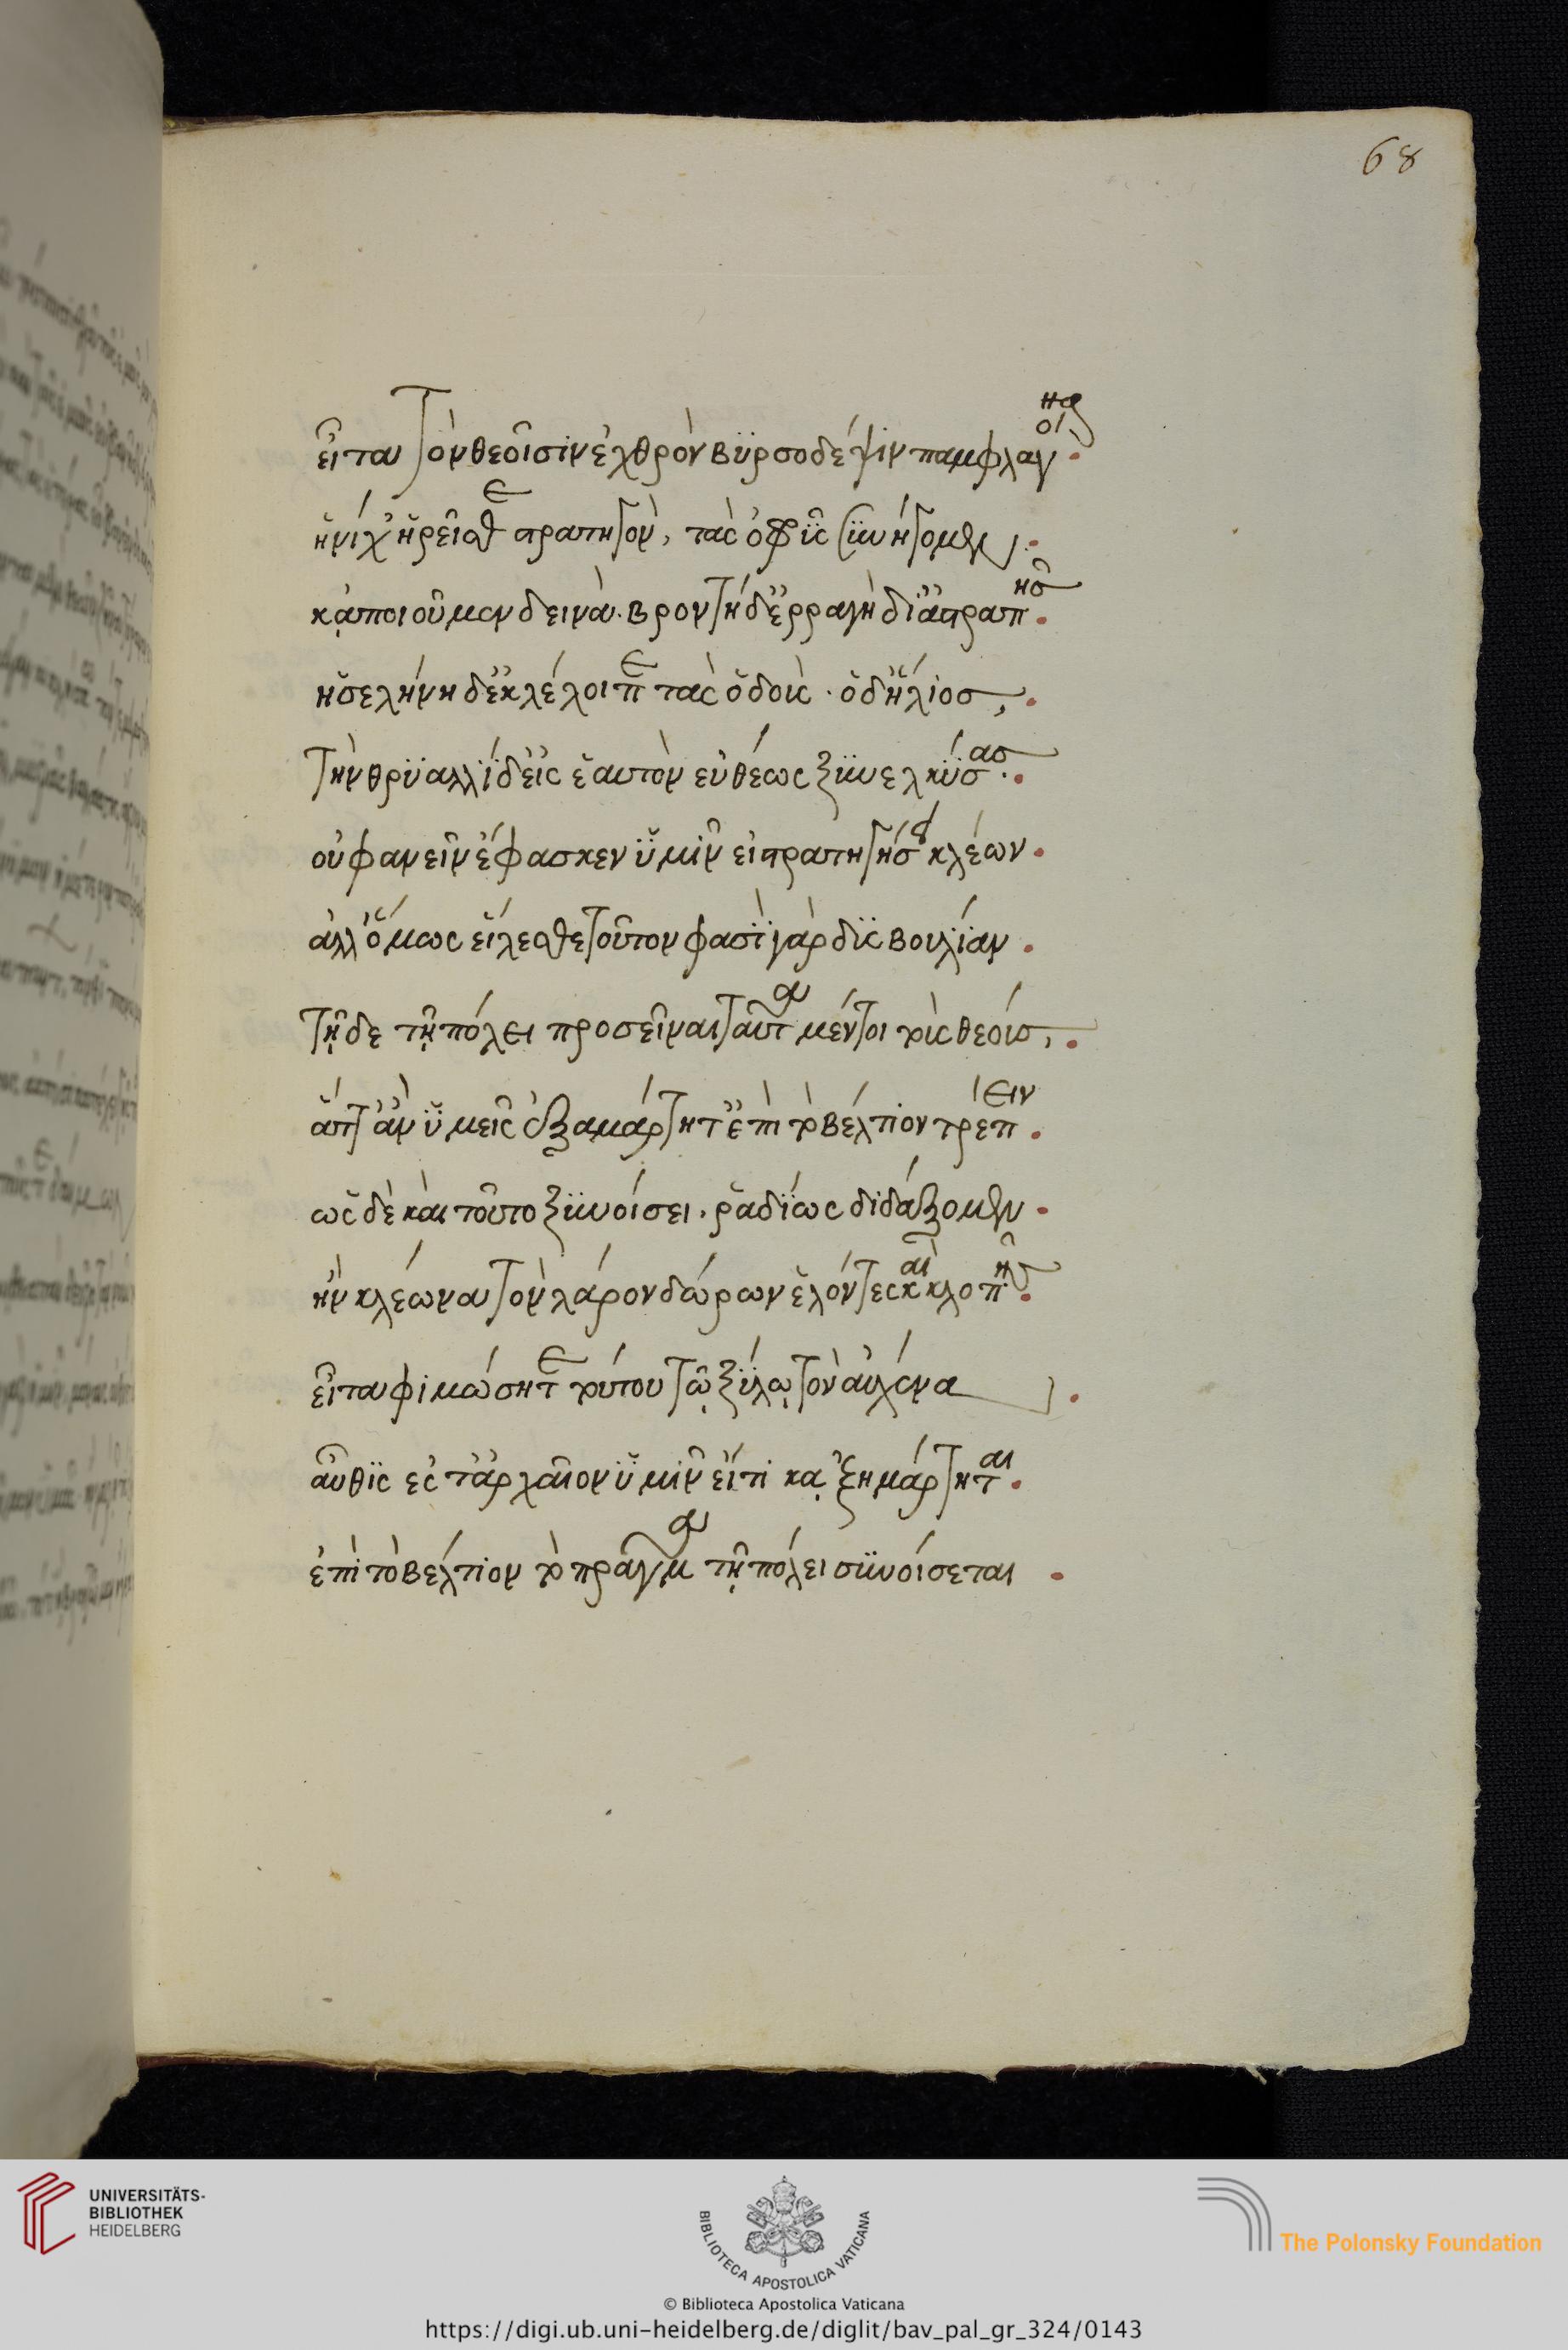 68
εἶτα τὸν θεοῖσιν ἐχθρὸν βυρσοδέψιν παμφλαγόνα
ἡνίχ' ἡρεῖσθε στρατηγὸν, τὰς ὀφρῦς ξυνήγομεν
κᾀποιοῦμεν δεινὰ. βροντὴ δ' ἐρράγη δι' ἀστραπῆς.
ἡ σελήνη δ' ἐκλέλοιπε τὰς ὁδοὺς. ὁ δ' ἥλιος,
τὴν θρυαλλίδ' εἰς ἑαυτὸν εὐθέως ξυνελκύσας.
οὐ φανεῖν ἔφασκεν ὑμῖν εἰ στρατηγήσει κλέων.
ἀλλ' ὅμως εἵλεσθε τοῦτον φασὶ γὰρ δυσβουλίαν.
τῇδε τῇ πόλει προσεῖναι ταῦτα μέντοι τοὺς θεοὺς,
ἅττ' ἂν ὑμεῖς ἐξαμάρτητ' ἐπὶ τὸ βέλτιον τρέπειν.
ὡς δὲ καὶ τοῦτο ξυνοίσει. ῥαδίως διδάξομεν.
ἢν κλέωνα τὸν λάρον δώρων ἑλόντες καὶ κλοπῆς.
εἶτα φιμώσητε τούτου τῷ ξύλῳ τὸν αὐχένα.
αὖθις ἐς τἀρχαῖον ὑμῖν εἴ τι κᾀξημάρτηται.
ἐπὶ τὸ βέλτιον τὸ πρᾶγμα τῇ πόλει συνοίσεται.
UNIVERSITÄTS-
BIBLIOTHEK
HEIDELBERG
BIBLIOTECA APOSTOLICA VATICANA
The Polonsky Foundation
© Biblioteca Apostolica Vaticana
https://digi.ub.uni-heidelberg.de/diglit/bav_pal_gr_324/0143